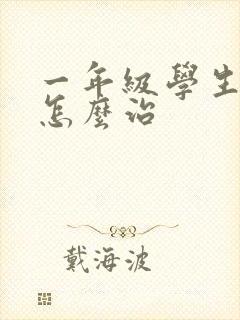 一年級學生
怎麼治
戴海波